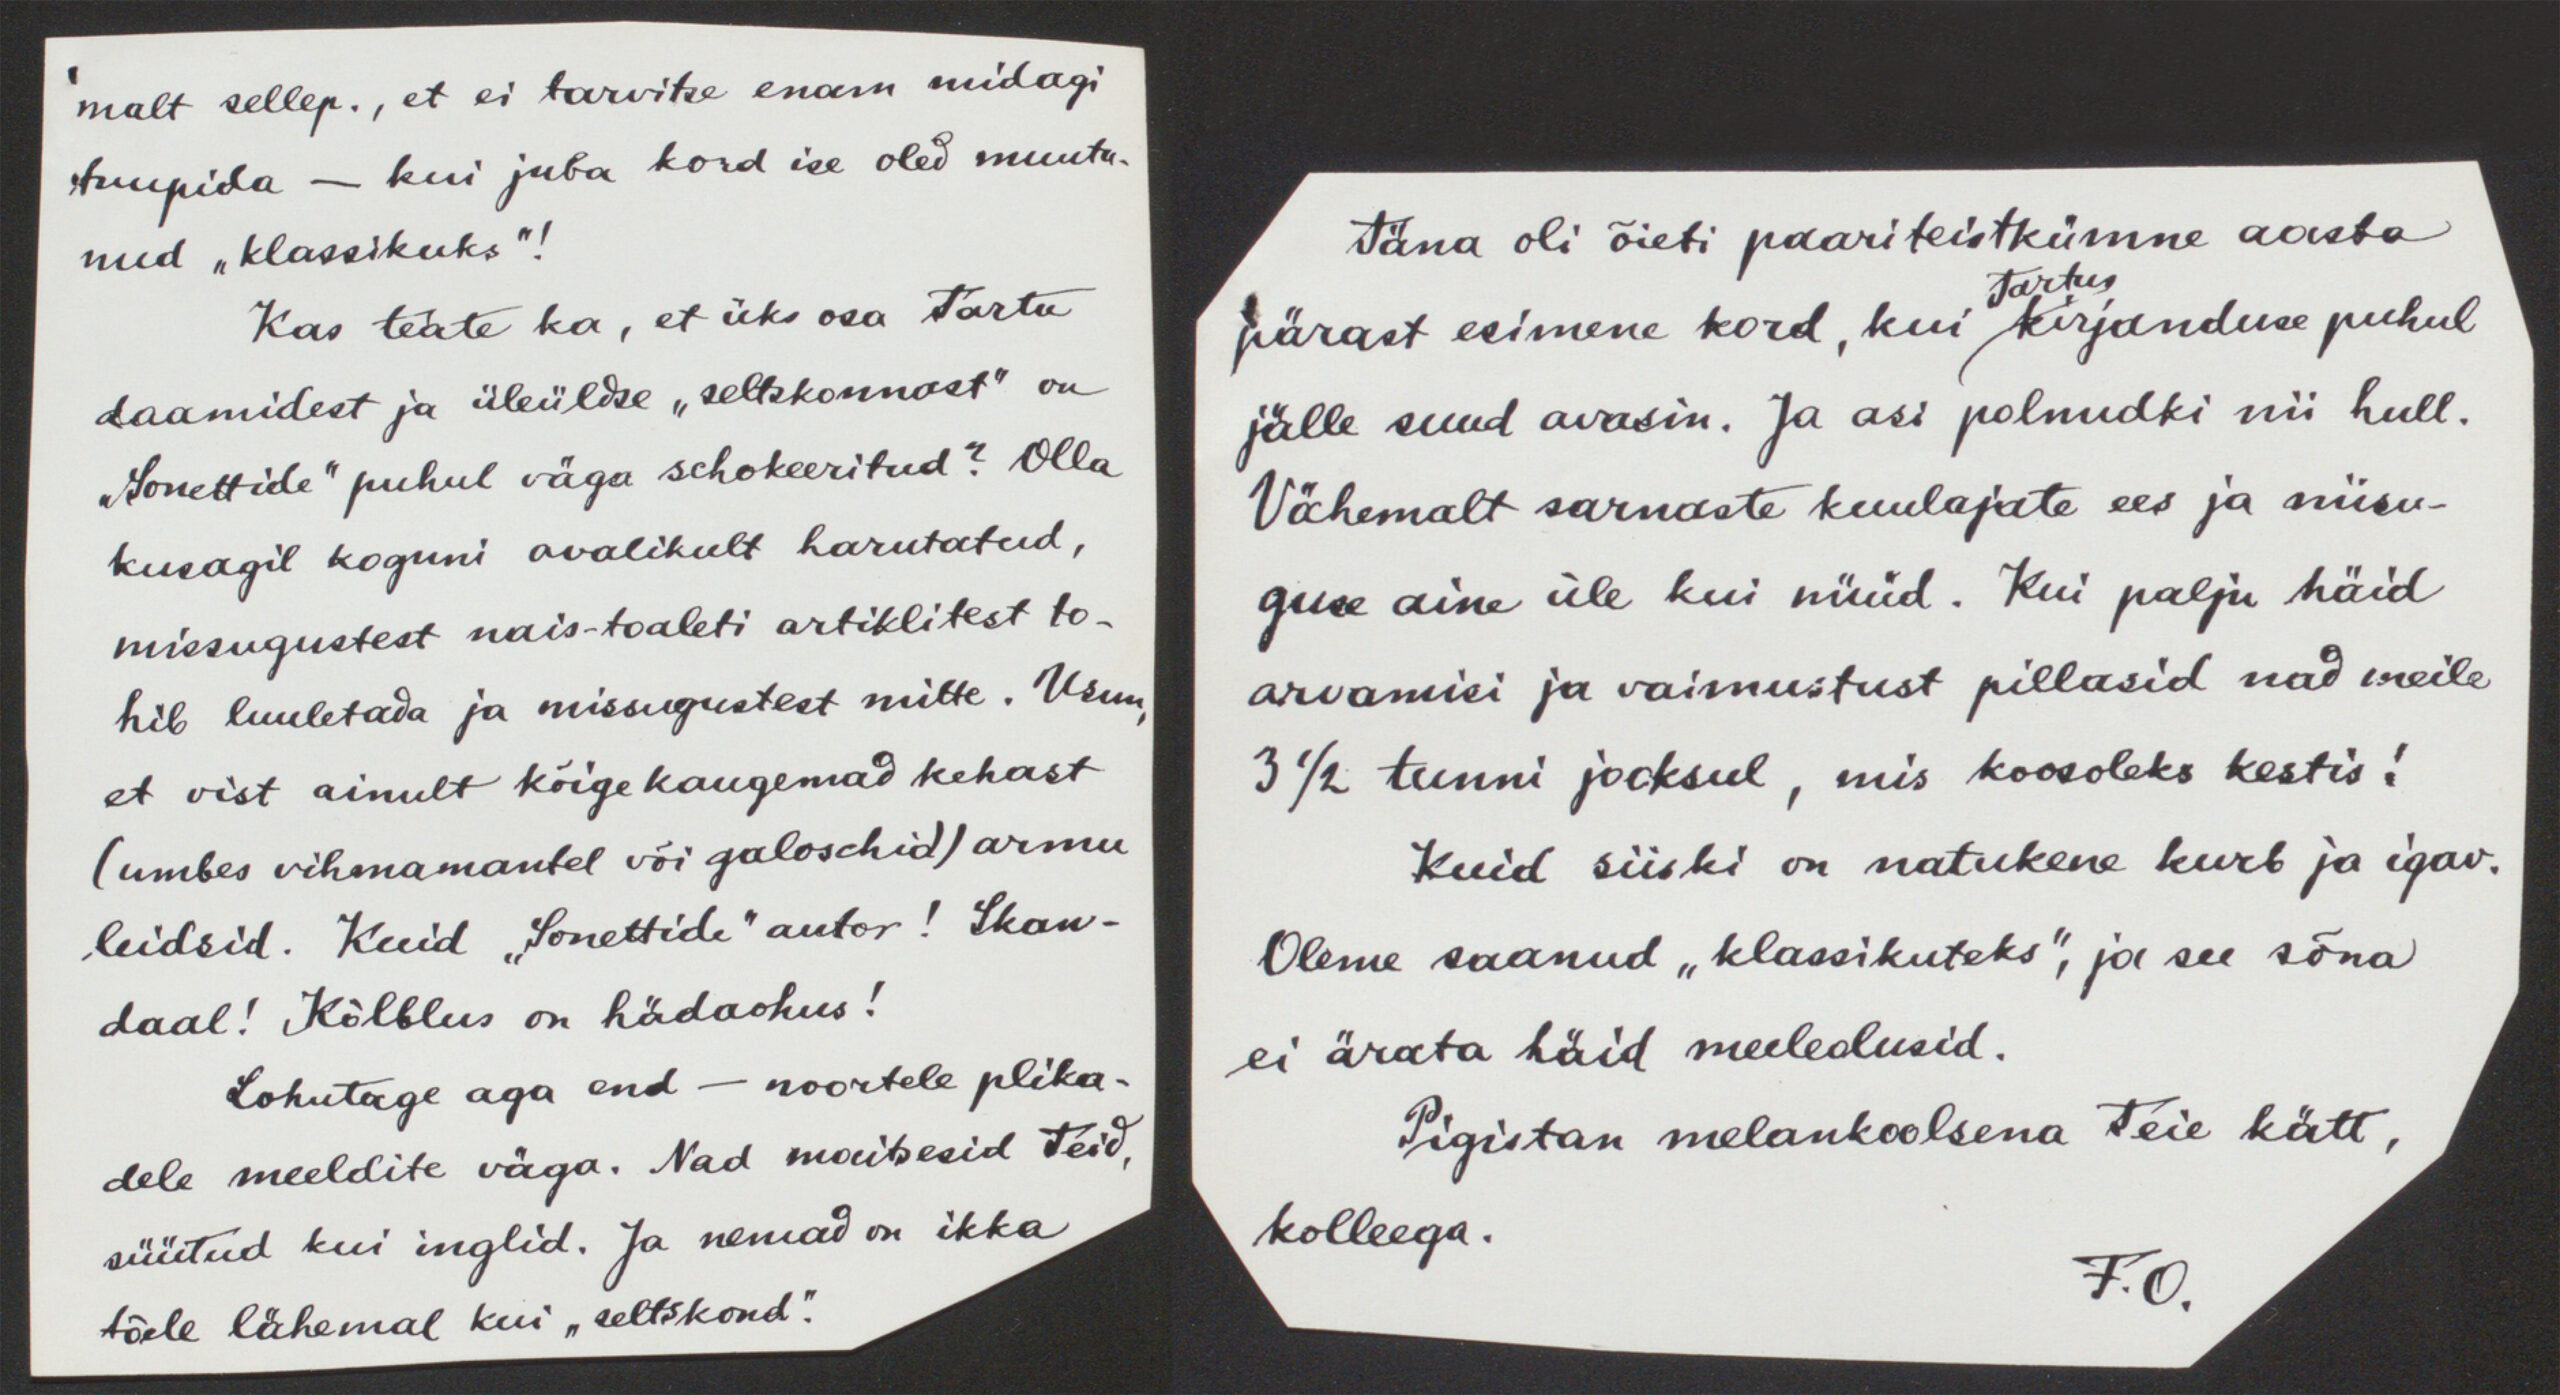 malt sellep., et ei tarvitse enam midagi
tuupida — kui juba kord ise oled muutu-
nud „klassikuks"!
Kas teate ka, et üks osa Tartu
daamidest ja üleüldse „seltskonnast" on
„Sonettide" puhul väga schokeeritud? Olla
kusagil koguni avalikult harutatud,
missugustest nais-toaleti artiklitest to-
hib luuletada ja missugustest mitte. Usun,
et vist ainult kõige kaugemad kehast
(umbes vihmamantel või galoschid) armu
leidsid. Kuid „Sonettide" autor! Skan-
daal! Kõlblus on hädaohus!
Lohutage aga end — noortele plika-
dele meeldite väga. Nad maitsesid Teid,
süütud kui inglid. Ja nemad on ikka
tõele lähemal kui „seltskond".
Täna oli õieti paariteistkümne aasta
pärast esimene kord, kui Tartus kirjanduse puhul
jälle suud avasin. Ja asi polnudki nii hull.
Vähemalt sarnaste kuulajate ees ja niisu-
guse aine üle kui nüüd. Kui palju häid
arvamisi ja vaimustust pillasid nad meile
3 1/2 tunni jooksul, mis koosoleks kestis!
Kuid siiski on natukene kurb ja igav.
Oleme saanud „klassikuteks", ja see sõna
ei ärata häid meeleolusid.
Pigistan melankoolsena Teie kätt,
kolleega.
F. O.